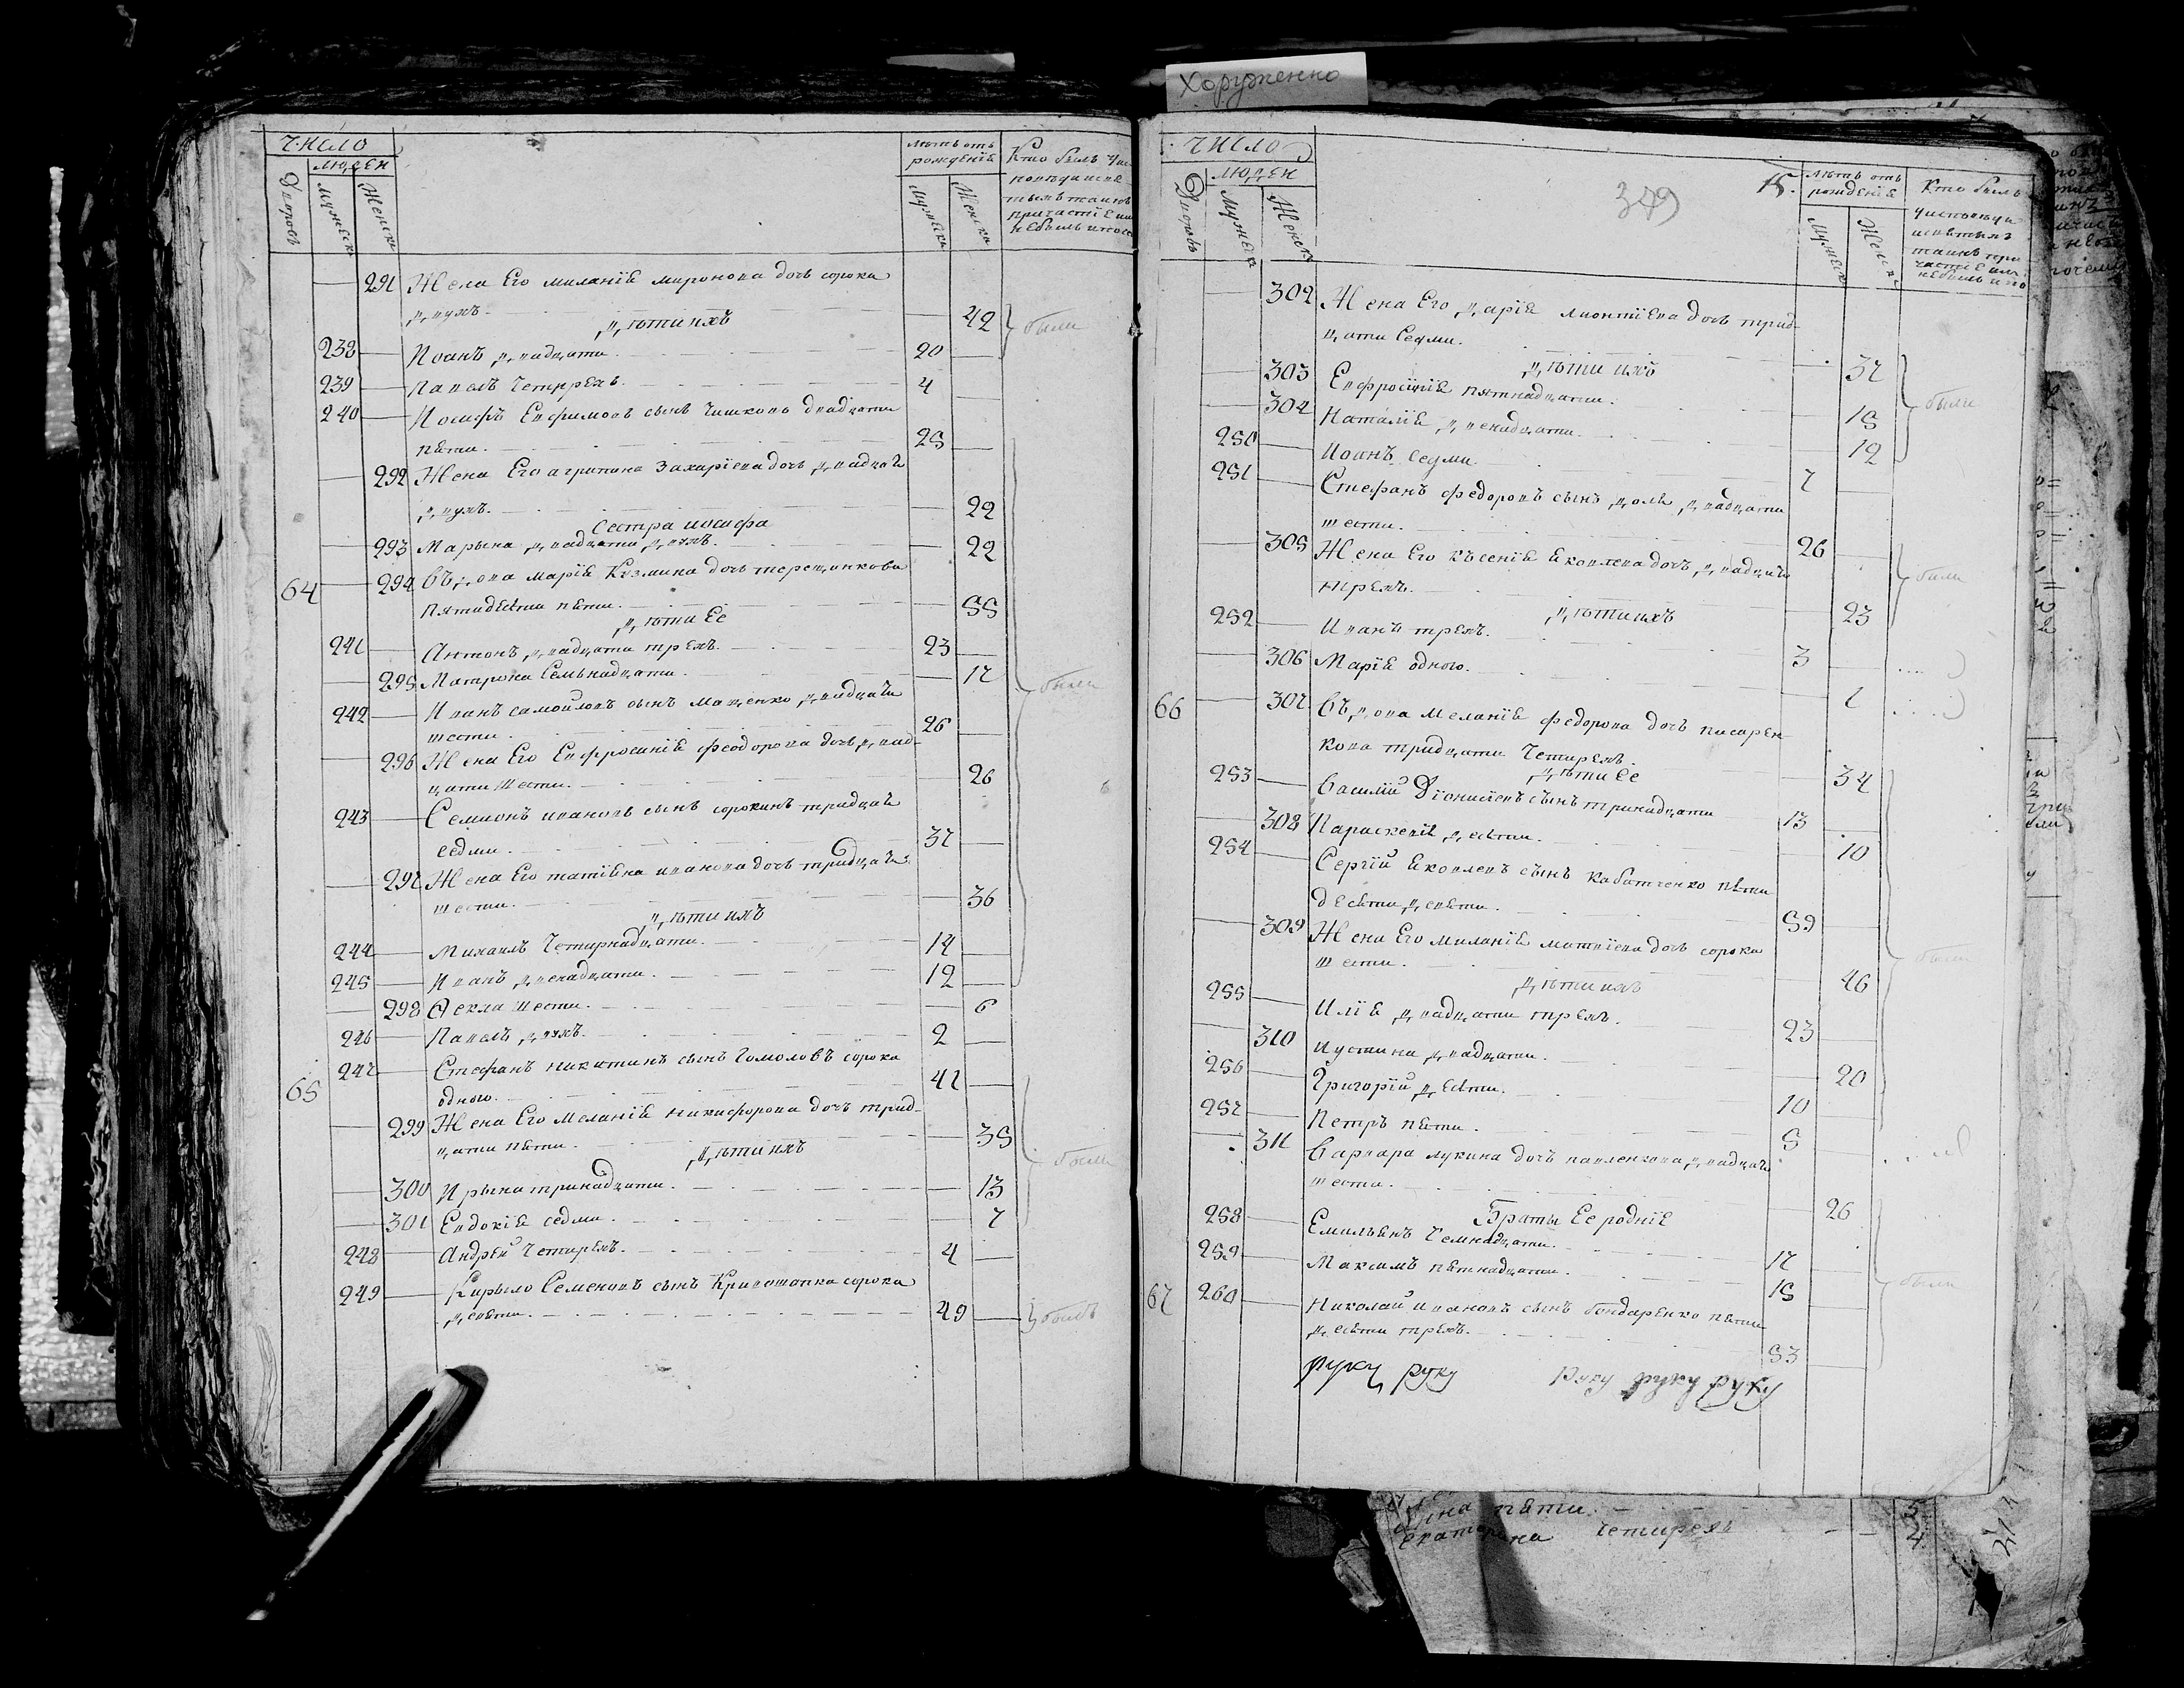 Хоруженко
Число
людей
Дворовъ
Мужеска
Женска
лѣтъ отъ
рожденїѧ
Мужеска
Женска
Кто былъ
291 Жена Его миланїѧ миронова дочь сорока
двухъ. 42
дѣти ихъ
были
238 Иоанъ двадцати 20
239 Павелъ Четырехъ. 4
240 Иосифъ Евфимовъ сынъ Чишковъ двадцати
пѧти. 25
292 Жена Его агрипина Захарїева дочь двадцати
двухъ. 22
Сестра иосифа
293 Марьѧна двадцати двухъ. 22
64 294 Вдова Марїѧ Кузмина дочь терещинкова
пятидесѧти пѧти. 55
дѣти Ее
241 Антонъ двадцати трехъ. 23
295 Матрона Семьнадцати. 17
были
242 Иванъ самойловъ сынъ мащенко двадцати
шести. 26
296 Жена Его Евфросинїѧ феодорова дочь двад-
цати Шести. 26
243 Семионъ ивановъ сынъ сорокинъ тридцати
седми. 37
297 Жена Его татїѧна иванова дочь тридцати
шести. 36
дѣти ихъ
244 Михаилъ Четырнадцати. 14
245 Иванъ двенадцати. 12
298 Ѳекла шести. 6
246 Павелъ двухъ. 2
65 247 Стефанъ никитинъ сынъ Гомоловъ сорока
одного. 41
299 Жена Его Меланїѧ никифорова дочь трид-
цати пѧти. 35
дѣти ихъ
были
300 Ирына тринадцати. 13
301 Евдокїѧ седми. 7
248 Андрей Четырехъ. 4
249 Кирыло Семеновъ сынъ Кривошапка сорока
девѧти. 49
былъ
Число
людей
Дворовъ
Мужеска
Женска
349
15.
лѣтъ отъ
рожденїѧ
Мужеска
Женска
Кто былъ
302 Жена Его дарїѧ лионтїева дочь трид-
цати Седми. 37
дѣти ихъ
303 Евфросїнїѧ пятнадцати. 15
были
304 Наталїѧ двенадцати. 12
250 Иоанъ седми 7
251 Стефанъ федоровъ сынъ долѧ двадцати
шести. 26
305 Жена Его Ксенїѧ Ѧковлева дочь двадцати
трехъ. 23
были
дѣти ихъ
252 Иванъ трехъ. 3
306 Марїѧ одного. 1
66 307 Вдова Меланїѧ федорова дочь писарен-
кова тридцати Четырехъ. 34
дѣти Ее
253 Василїй Дїонисїевъ сынъ тринадцати 13
308 Параскевїѧ десѧти. 10
254 Сергїй Ѧковлевъ сынъ Кабатченко пѧти
десѧти девѧти. 59
309 Жена Его миланїѧ матвїева дочь сорока
шести. 46
были
дѣти ихъ
255 Илїѧ двадцати трехъ. 23
310 иустина двадцати. 20
256 Григорїй десѧти. 10
257 Петръ пѧти. 5
311 Варвара лукина дочь павленкова двадцати
шести. 26
Браты Ее роднїе
258 Емильѧнъ Семнадцати. 17
259 Максимъ пѧтнадцати. 15
были
67 260 Николай ивановъ сынъ бондаренко пѧти
десѧти трехъ. 53
руку руку руку руку руку
пѧти. 5
Екатерина четирехъ 4